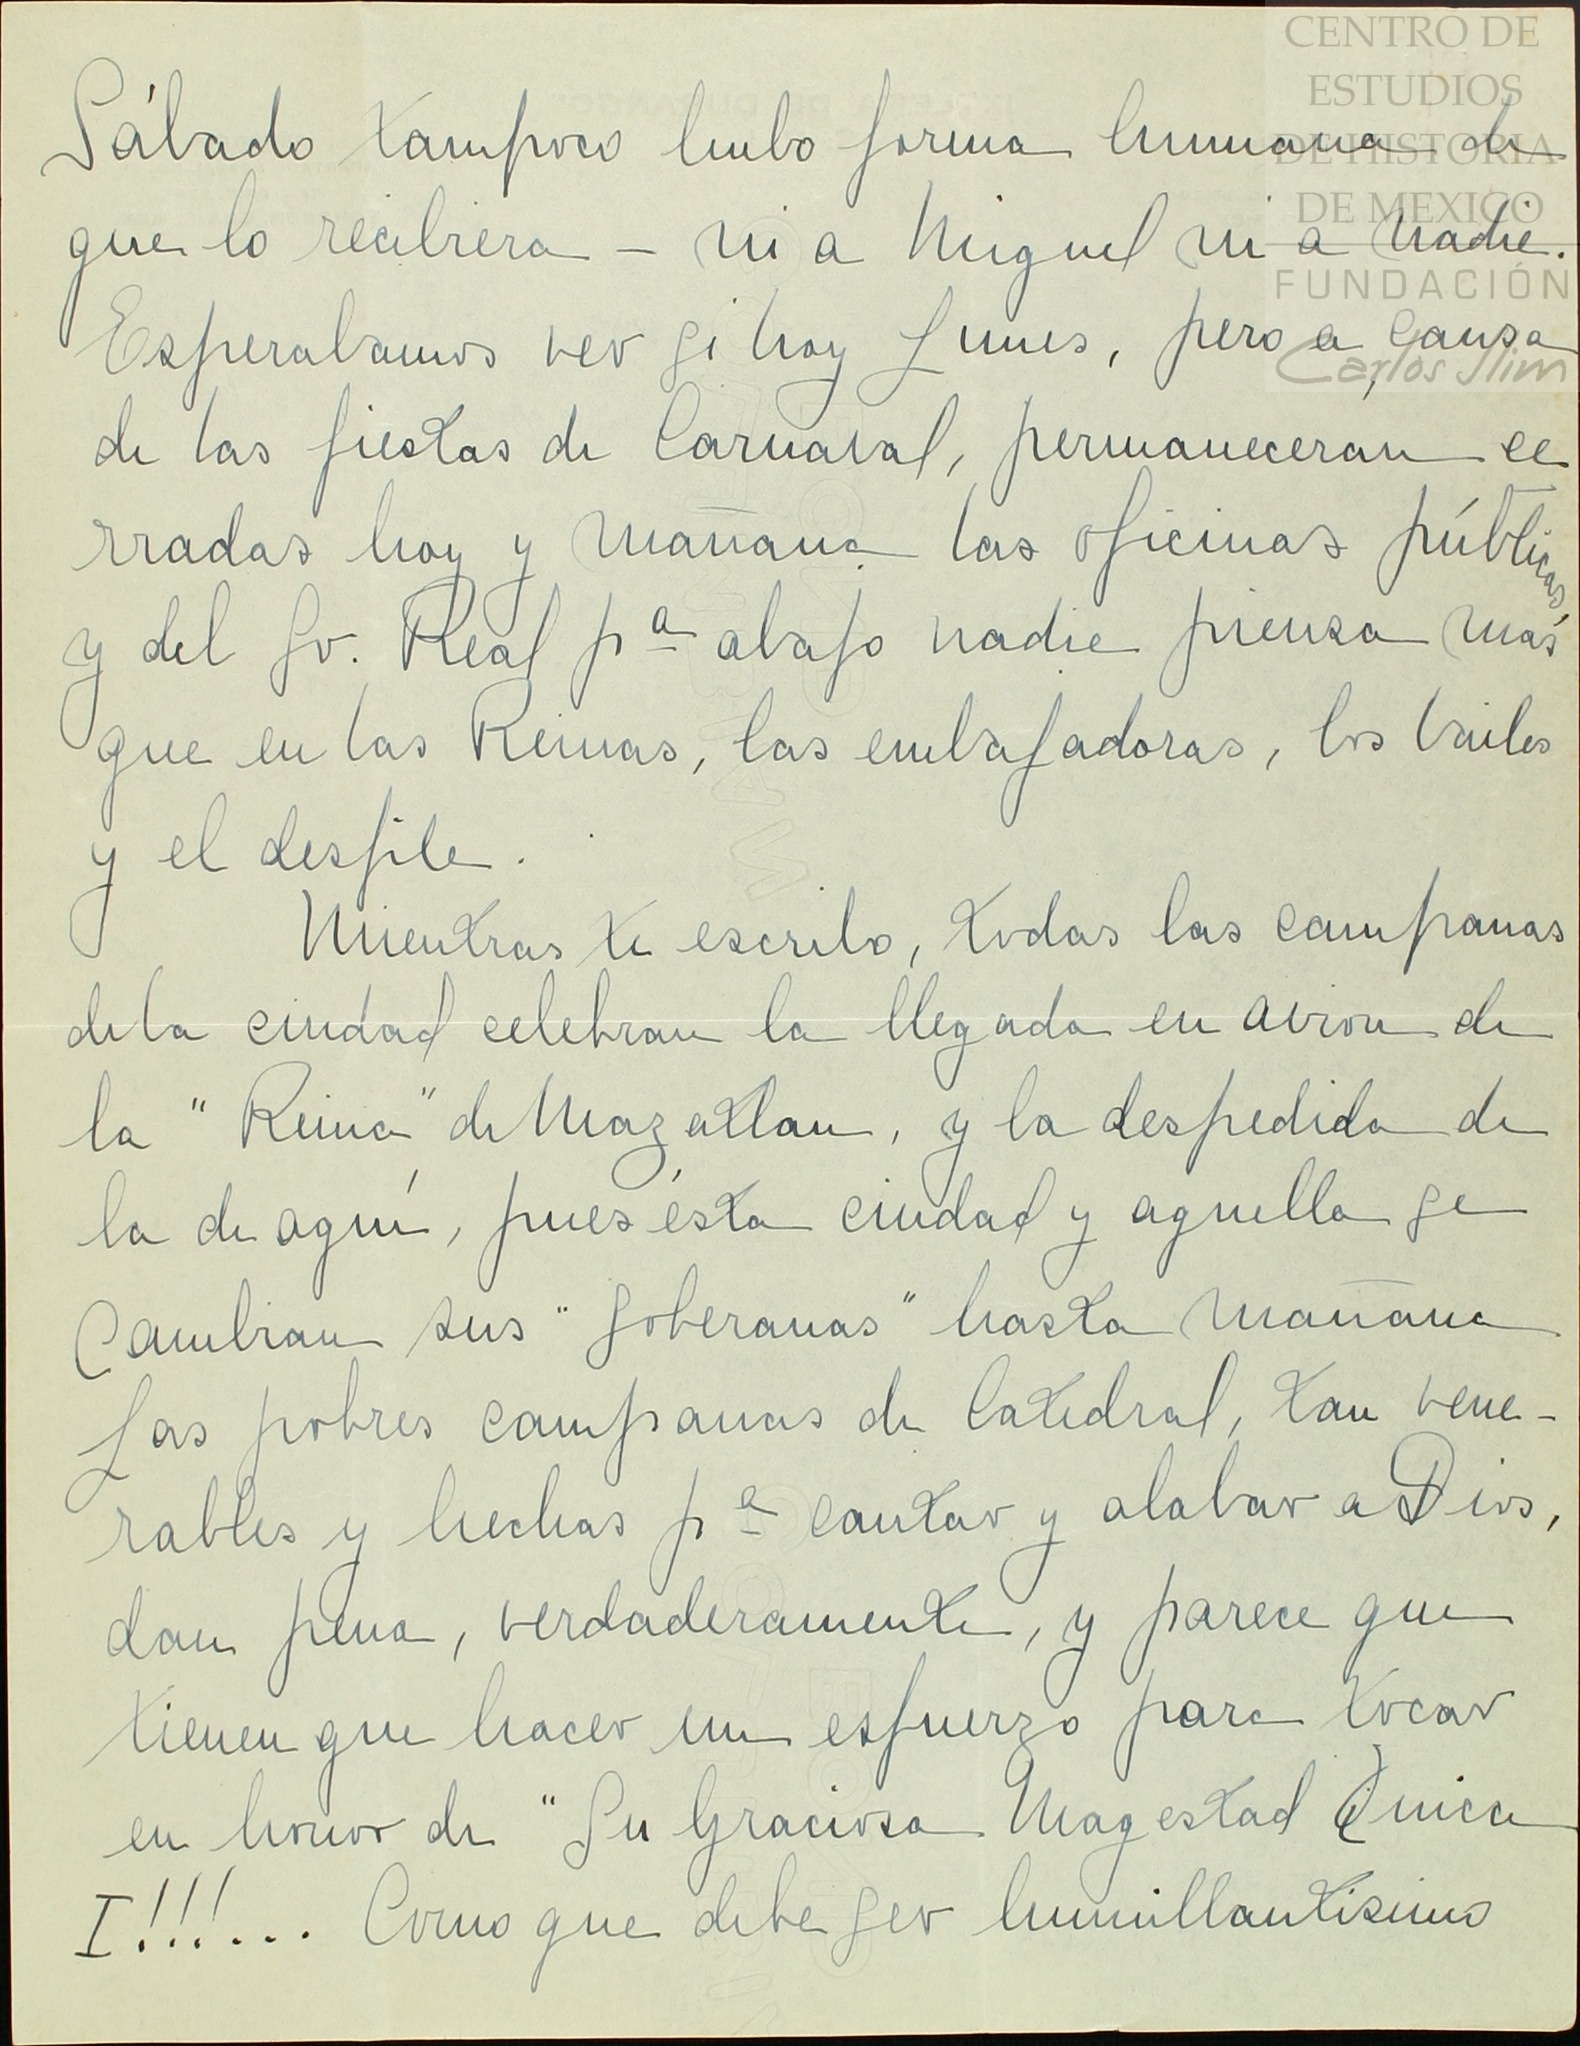 CENTRO DE
ESTUDIOS
DE HISTORIA
DE MEXICO
FUNDACIÓN
Carlos Slim
Sábado tampoco hubo forma humana de
que lo recibiera – ni a Miguel ni a nadie.
Esperabamos ver si hoy Lunes, pero a causa
de las fiestas de Carnaval, permanecerán ce
rradas hoy y mañana las oficinas públicas,
y del Sr. Real pª abajo nadie piensa más
que en las Reinas, las embajadoras, los bailes
y el desfile.
Mientras te escribo, todas las campanas
de la ciudad celebran la llegada en avion de
la "Reina" de Mazatlan, y la despedida de
la de aquí, pues ésta ciudad y aquella se
cambian sus "soberanas" hasta mañana
Las pobres campanas de Catedral, tan vene-
rables y hechas pª cantar y alabar a Dios,
dan pena, verdaderamente, y parece que
tienen que hacer un esfuerzo para tocar
en honor de "Su Graciosa Magestad
I!!!... Como que debe ser humillantisimo